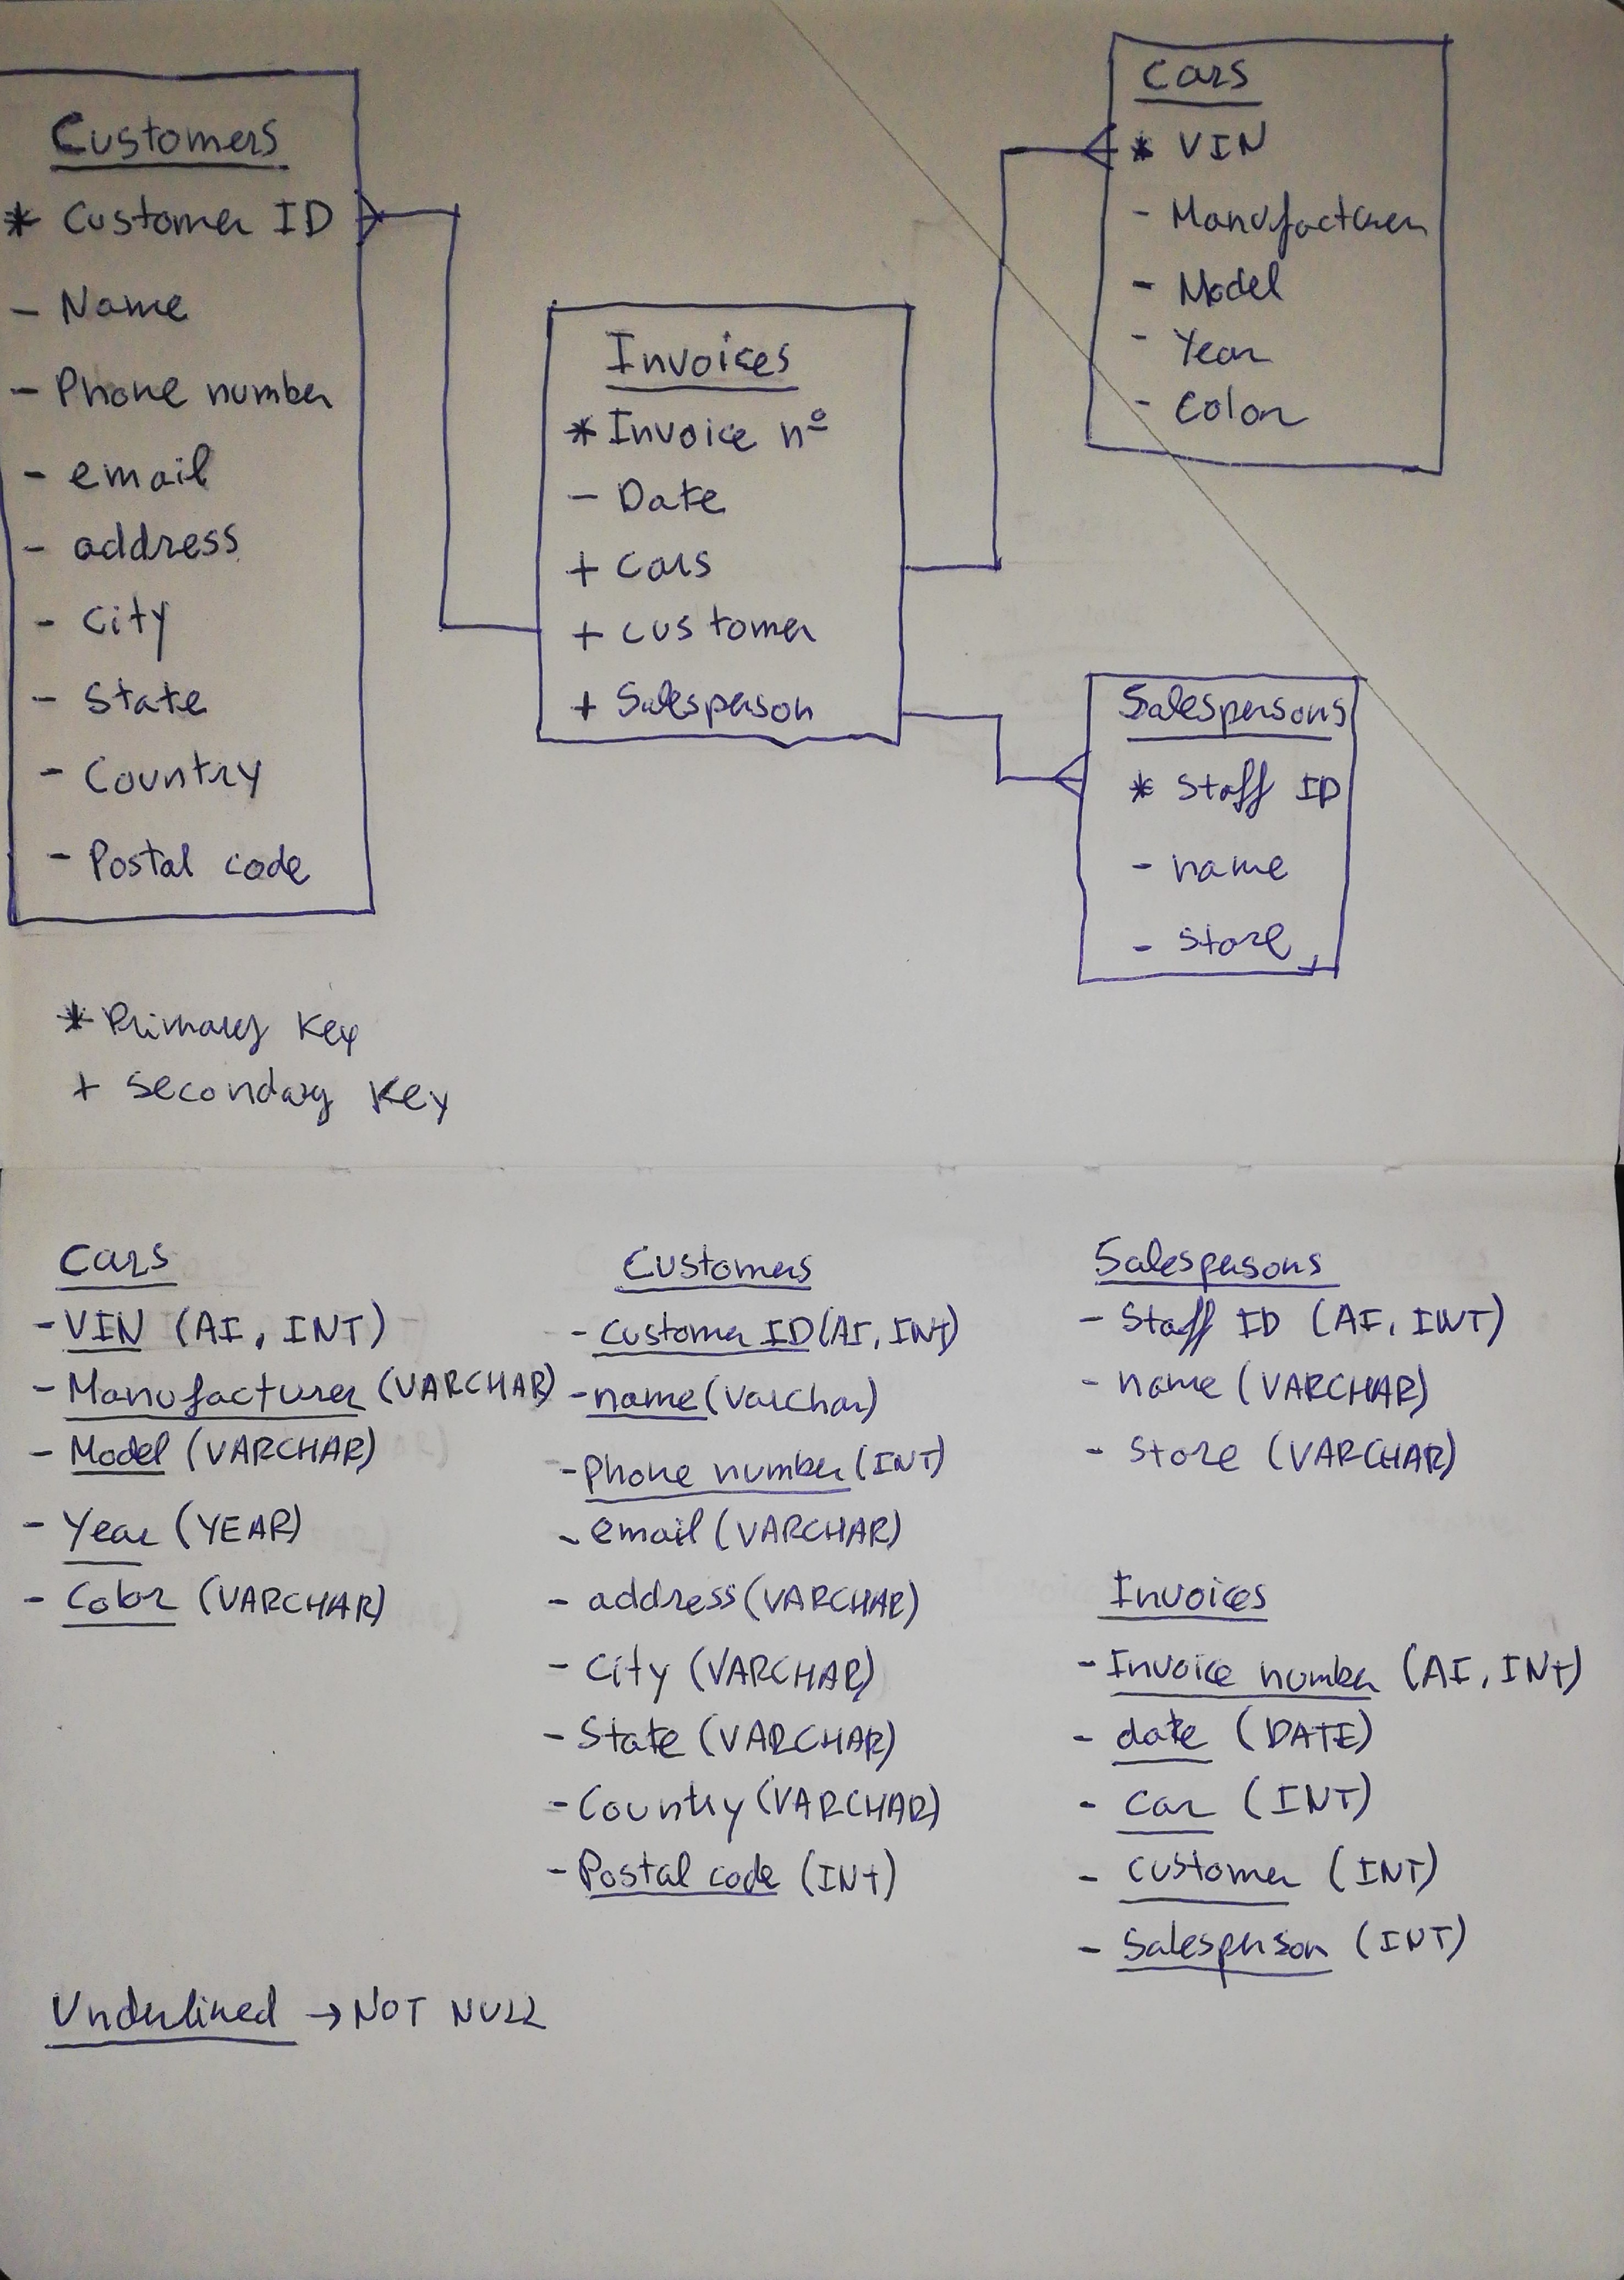 Customers
* Customer ID
- Name
- Phone number
- email
- address
- City
- State
- Country
- Postal code
Invoices
* Invoice nº
- Date
+ Cars
+ customer
+ Salesperson
Cars
* VIN
- Manufacturer
- Model
- Year
- Color
Salespersons
* Staff ID
- name
- store
* Primary Key
+ Secondary Key
Cars
- VIN (AI, INT)
- Manufacturer (VARCHAR)
- Model (VARCHAR)
- Year (YEAR)
- Color (VARCHAR)
Customers
- Customer ID (AI, INT)
- name (Varchar)
- Phone number (INT)
- email (VARCHAR)
- address (VARCHAR)
- City (VARCHAR)
- State (VARCHAR)
- Country (VARCHAR)
- Postal code (INT)
Salespersons
- Staff ID (AI, INT)
- name (VARCHAR)
- Store (VARCHAR)
Invoices
- Invoice number (AI, INT)
- date (DATE)
- Car (INT)
- customer (INT)
- Salesperson (INT)
Underlined → NOT NULL